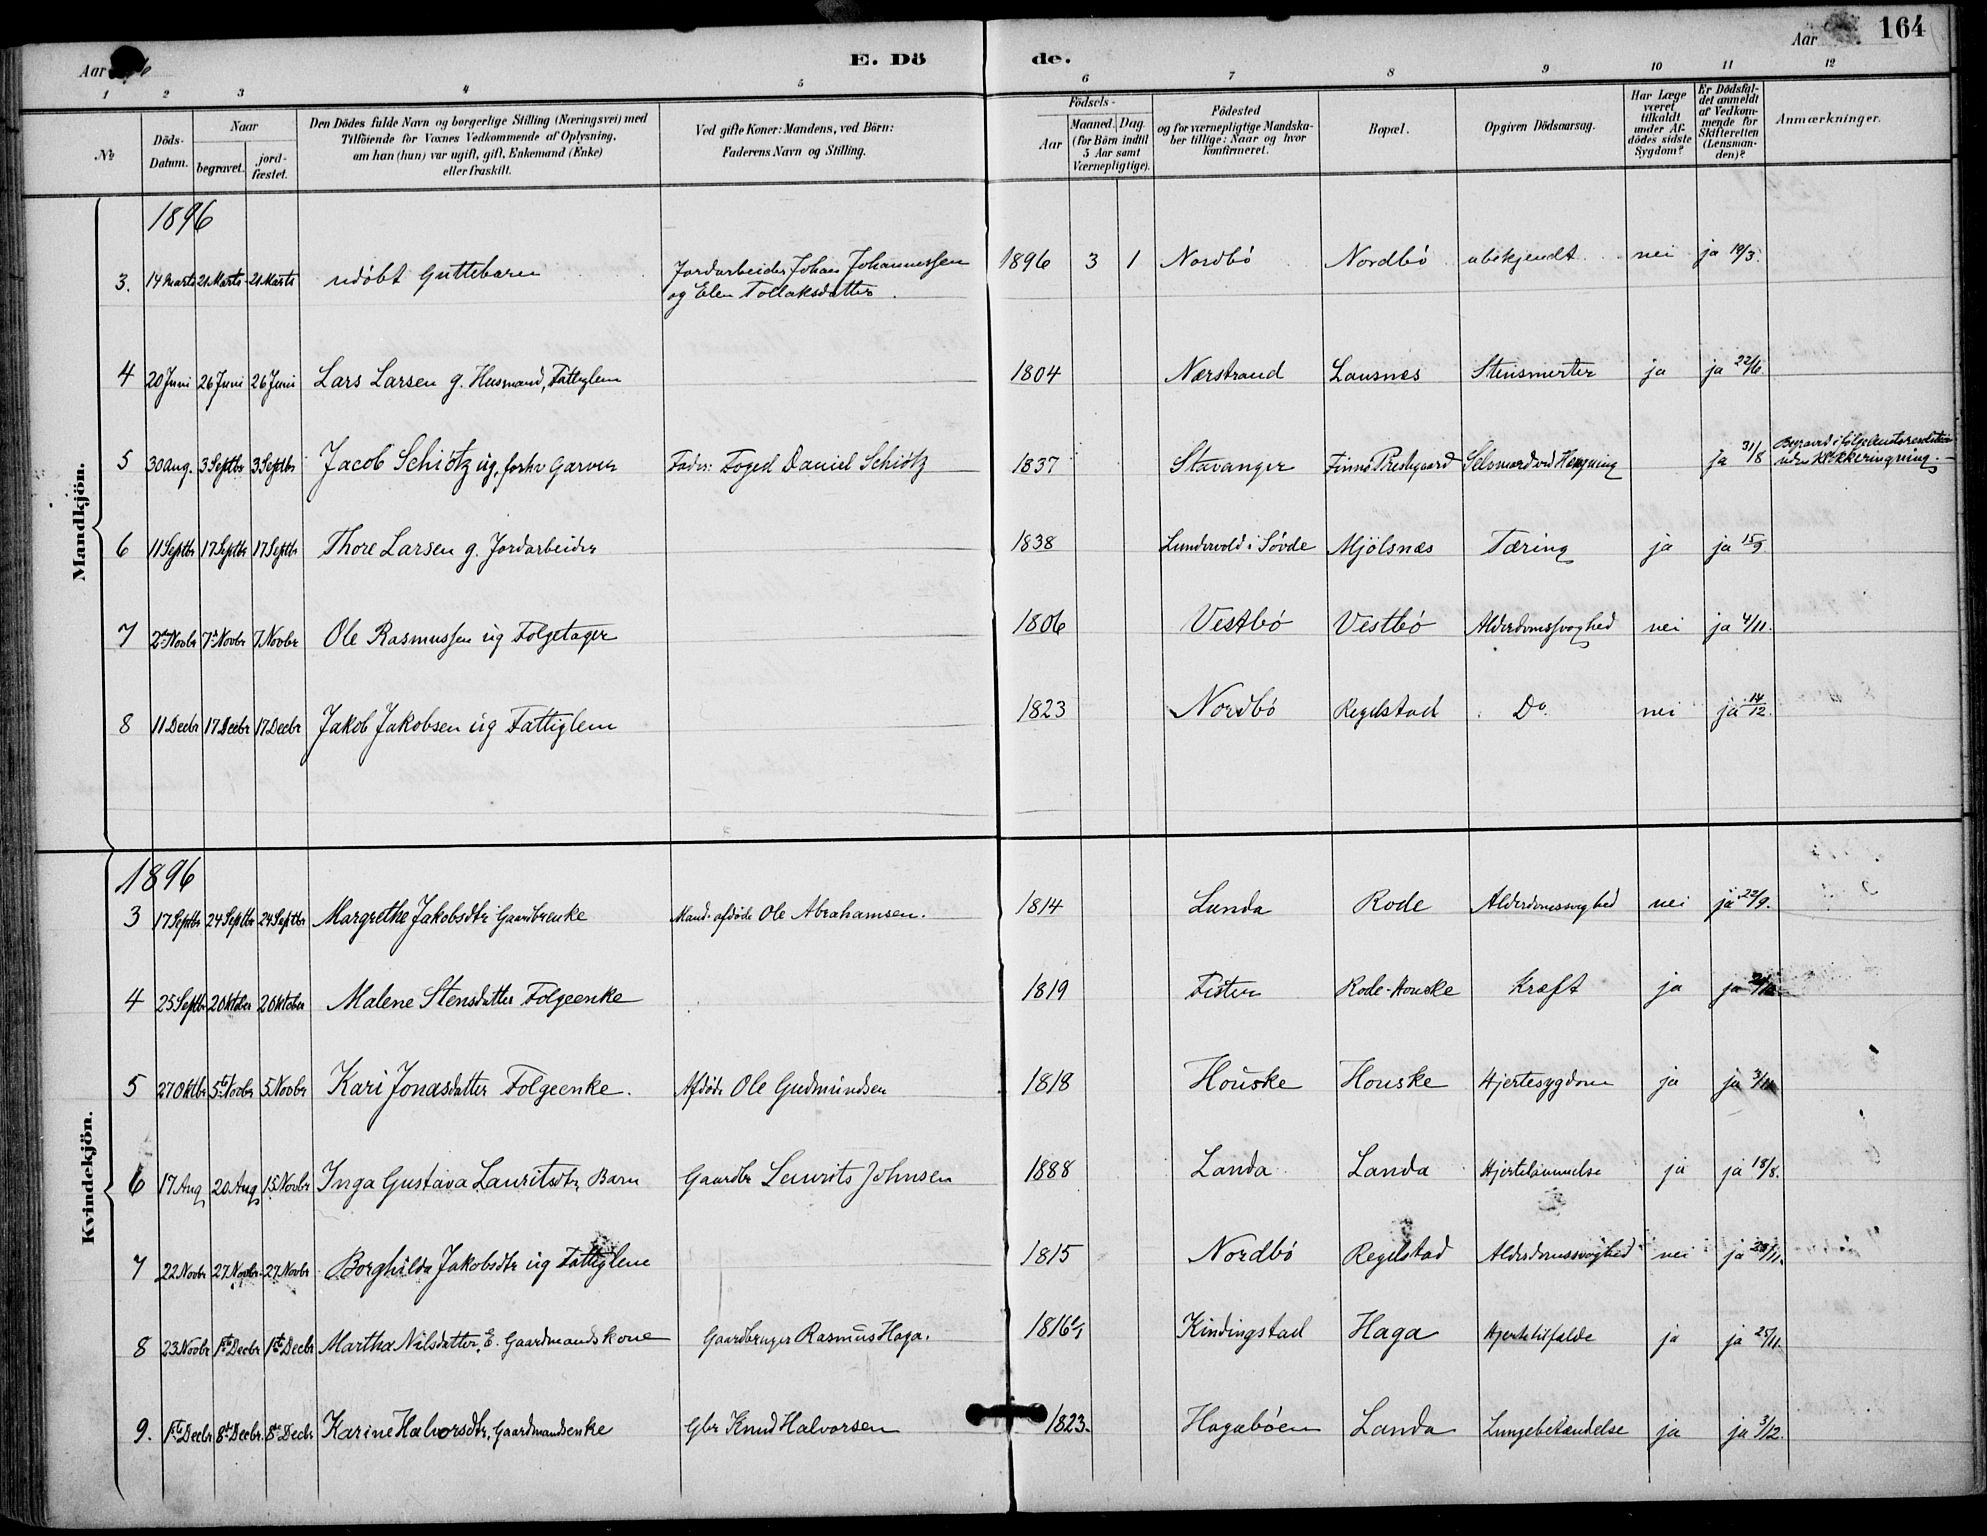 164
Aar
E. Dö de.
Aar
1 2 3 4 5 6 7 8 9 10 11 12
No
Döds-Datum.
Naar
begravet.
jord-fæstet.
Den Dödes fulde Navn og borgerlige Stilling (Næringsvei) med
Tilföiende for Voxnes Vedkommende af Oplysning,
om han (hun) var ugift, gift, Enkemand (Enke)
eller fraskilt.
Ved gifte Koner: Mandens, ved Börn:
Faderens Navn og Stilling.
Födsels-
Aar
Maaned. Dag.
(for Börn indtil
5 Aar samt
Værnepligtige).
Födested
og for værnepligtige Mandska-
ber tillige: Naar og hvor
konfirmeret.
Bopæl.
Opgiven Dödsaarsag.
Har Læge
været
tilkaldt
under Af-
dödes sidste
Sygdom?
Er Dödsfal-
det anmeldt
af Vedkom-
mende for
Skifteretten
(Lensman-
den)?
Anmærkninger.
Mandkjön.
1896
3. 14 Marts 21 Marts 21 Marts udøbt Guttebarn Jordarbeider Johan Johannessen 1896 3 1 Nordbö Nordbö ubekjendt nei ja 19/3.
og Elen Tollaksdatter.
4 20 Juni 26 Juni 26 Juni Lars Larsen g. Husmand, Fattiglem 1804 Nærstrand Lausnes Stensmerter ja ja 22/6
5 30 Aug. 3 Septbr 3 Septbr Jacob Schiötz ug, forhv Garver Fader: Foged Daniel Schiötz 1837 Stavanger Finnö Prestegaard Selvmord ved Hængning ja 31/8 Begravet i følge Amtsresolution
uden Klokkeringning.
6 11 Septbr 17 Septbr 17 Septbr Thore Larsen g. Jordarbeider 1838 Lundevold i Søvde Mjölsnæs Tæring ja ja 15/9
7 2 Novbr 7 Novbr 7 Novbr Ole Rasmussen ug Folgetager 1806 Vestbö Vestbö Alderdomssvaghed nei ja 4/11.
8 11 Decbr 17 Decbr 17 Decbr Jakob Jakobsen ug Fattiglem 1823 Nordbö Regelstad Do. nei ja 14/12.
Kvindekjön.
1896
3 17 Septbr 24 Septbr 24 Septbr Margrethe Jakobsdtr Gaardbrenke Mand. afdøde Ole Abrahamsen. 1814 Lunda Rode Alderdomssvaghed nei ja 22/9.
4 25 Septbr 2 Oktober 2 Oktober Malene Stensdatter Folgeenke 1819 Fister Rode-Houske Kræft ja ja
5 27 Oktbr 5 Novbr 5 Novbr Kari Jonasdatter Folgeenke. Afdøde Ole Gudmundsen 1818 Houske Houske Hjertesygdom ja ja 3/11
6 17 Aug 20 Aug 15 Novbr Inga Gustava Lauritsdtr, Barn Gaardbr Laurits Johnsen 1888 Landa Landa Hjertelammelse ja ja 18/8.
7 22 Novbr 27 Novbr. 27 Novbr Borghilda Jakobsdtr ug Fattiglem 1815 Nordbö Regelstad Alderdomssvaghed nei ja 25/11.
8 23 Novbr 1ste Decbr 1ste Decbr Martha Nilsdatter, E. Gaardmandskone Gaardbruger Rasmus Haga. 1816 Kindingstad Haga Hjertetilfælde ja ja 25/11.
9. 1ste Decbr 8de Decbr. 8de Decbr Karine Halvorsdtr, Gaardmandsenke Gbr Knud Halvorsen 1823. Hagabøen Landa Lungebetændelse ja ja 3/12.